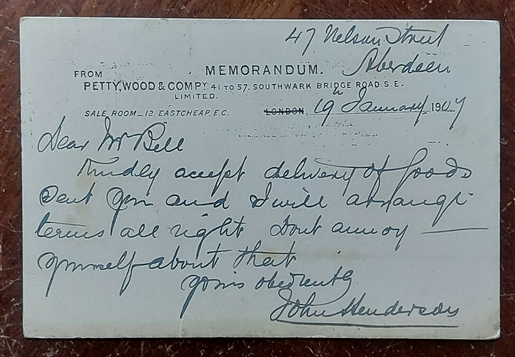 47 Nelson Street
Aberdeen
FROM MEMORANDUM.
PETTY, WOOD & COMPY. 41 TO 57, SOUTHWARK BRIDGE ROAD. S.E.
LIMITED.
SALE ROOM _ 12, EASTCHEAP, E.C. LONDON, 19th January 1907
Dear Mr Bell
Kindly accept delivery of Goods
sent you and I will arrange
terms all right Dont annoy —
yourself about that
yours obediently
John Henderson